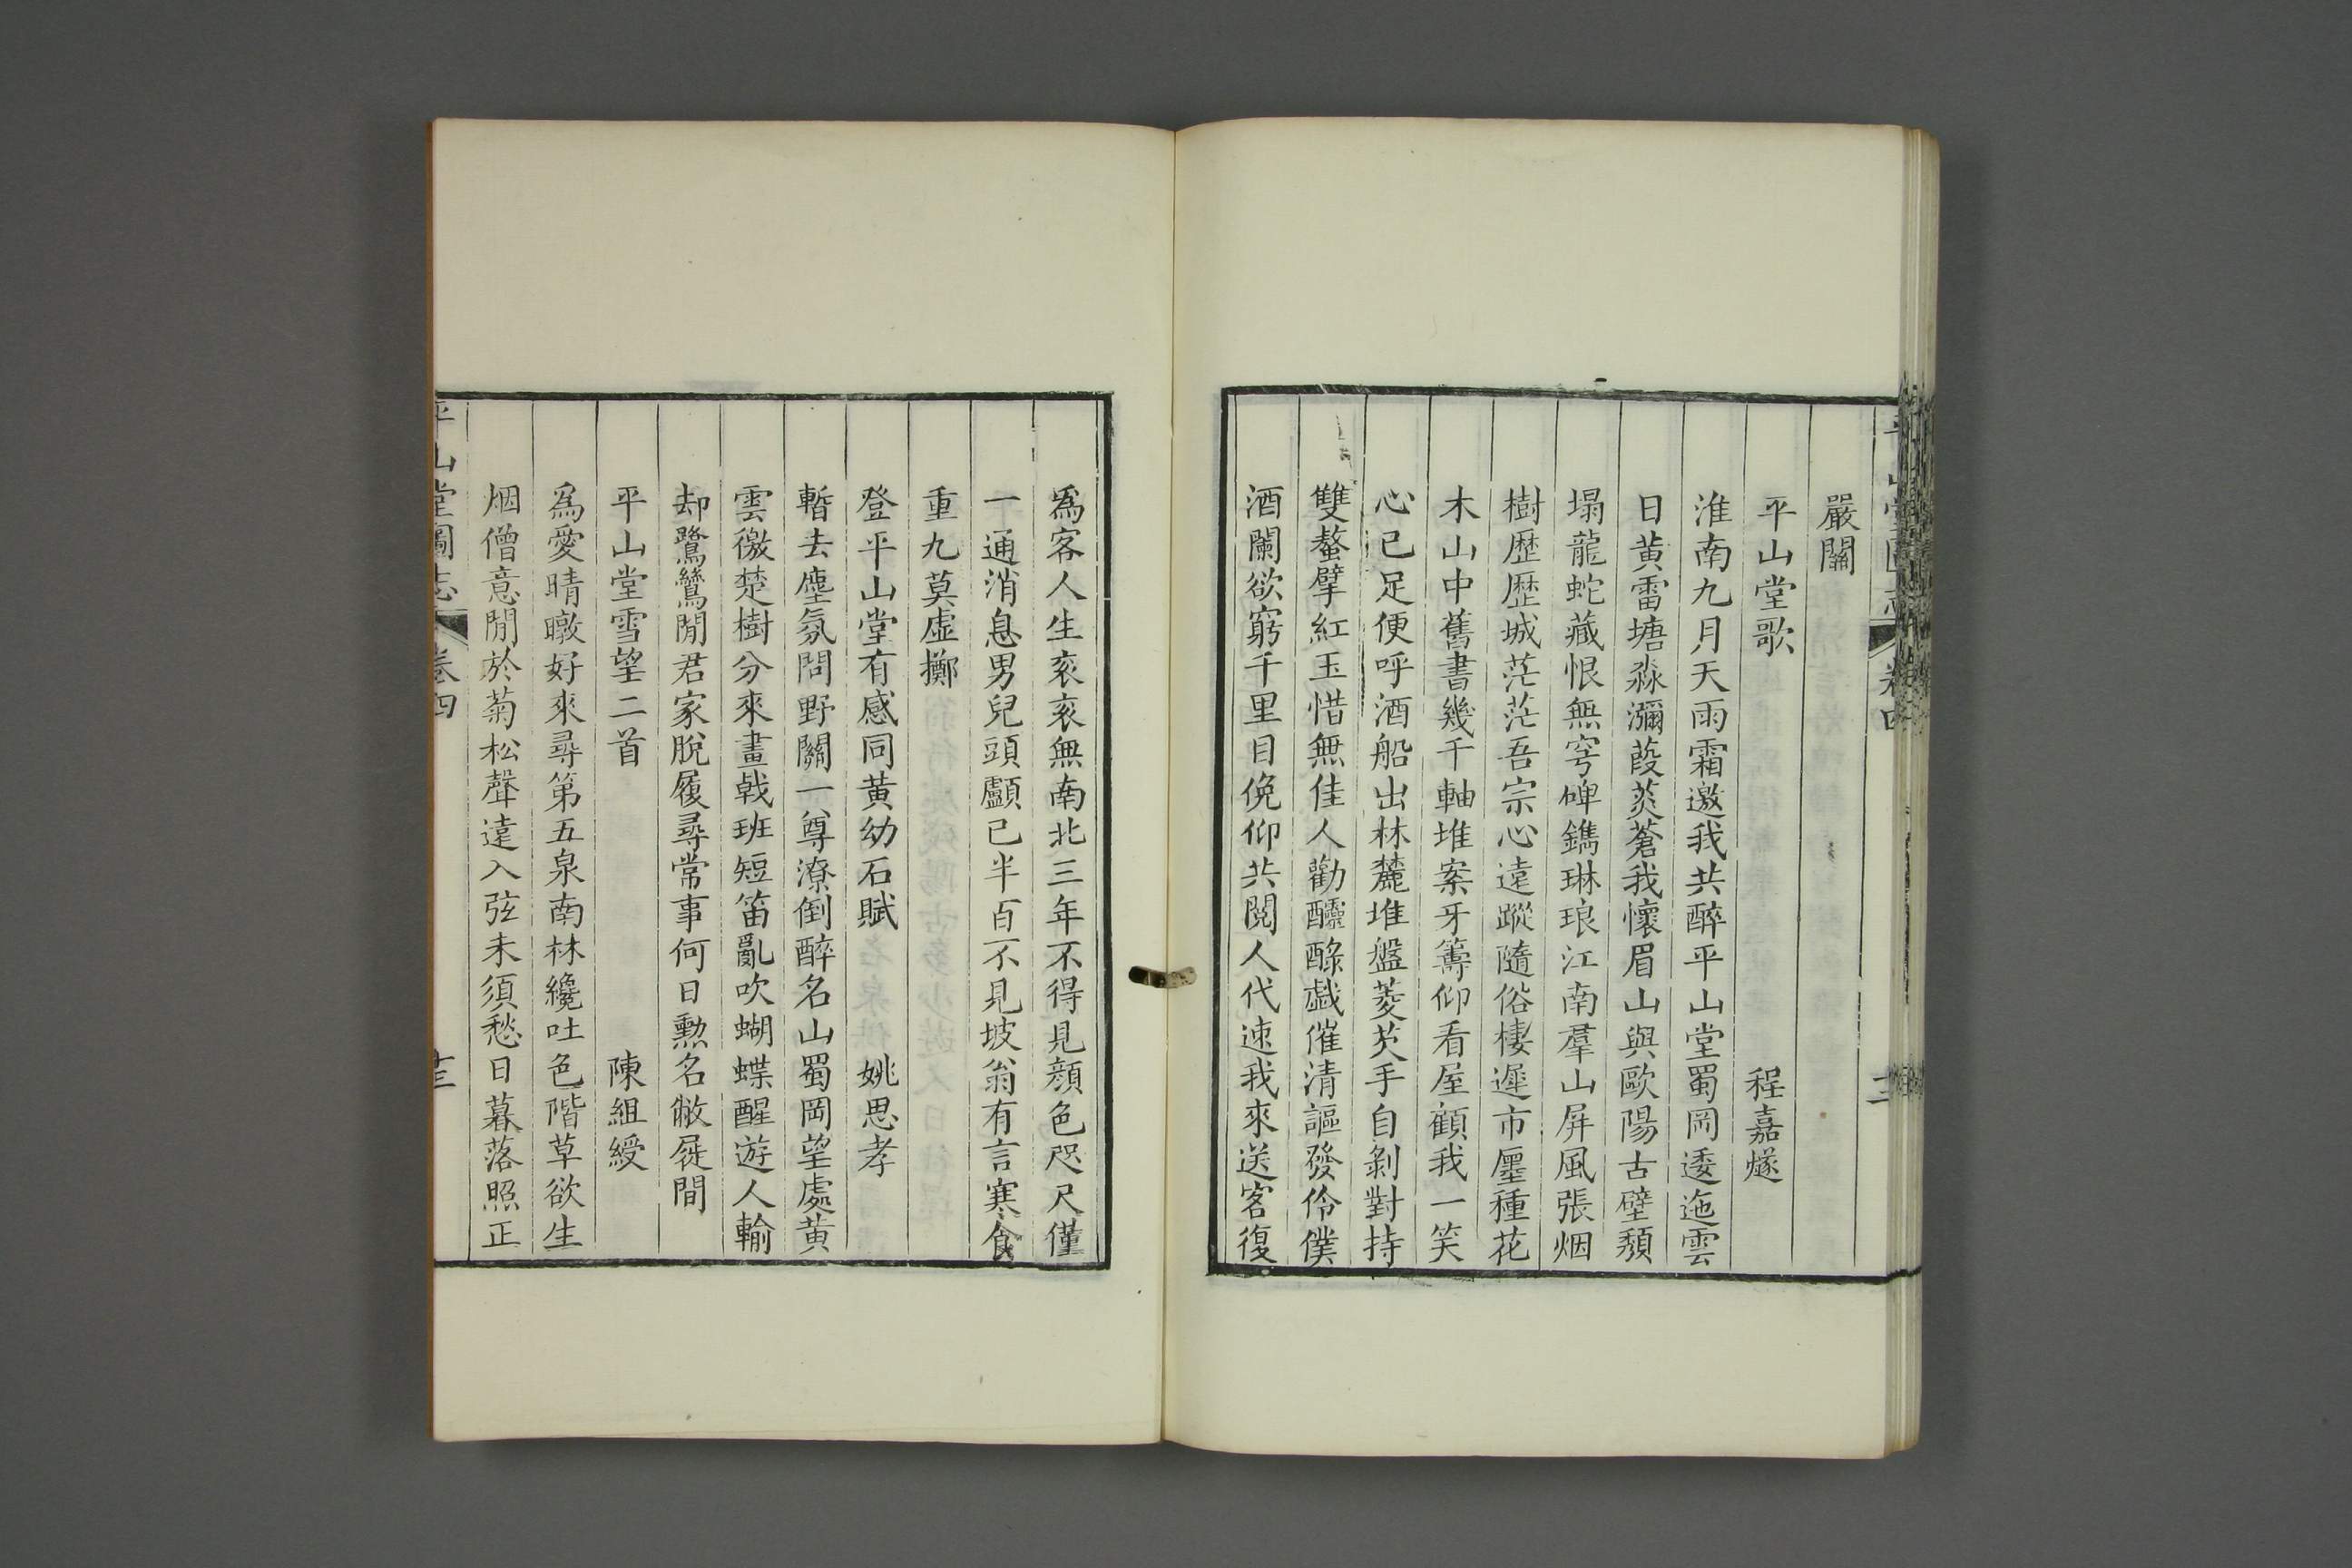 嚴關
平山堂歌 程嘉燧
淮南九月天雨霜邀我共醉平山堂蜀岡逶迤雲
日黃雷塘淼瀰葭菼蒼我懷眉山與歐陽古壁頹
塌龍蛇藏恨無穹碑鐫琳琅江南羣山屏風張烟
樹歷歷城茫茫吾宗心遠蹤隨俗棲遲市廛種花
木山中舊書幾千軸堆案牙籌仰看屋顧我一笑
心已足便呼酒船出林麓堆盤菱芡手自剝對持
雙螯擘紅玉惜無佳人勸醽醁戱催清謳發伶僕
酒闌欲窮千里目俛仰共閱人代速我來送客復
爲客人生衮衮無南北三年不得見顏色咫尺僅
一通消息男兒頭顱已半百不見坡翁有言寒食
重九莫虛擲
登平山堂有感同黃幼石賦 姚思孝
暫去塵氛問野關一尊潦倒醉名山蜀岡望處黃
雲微楚樹分來畫戟班短笛亂吹蝴蝶醒遊人輸
却鷺鷥閒君家脫履尋常事何日勲名敝屣間
平山堂雪望二首 陳組綬
爲愛晴暾好來尋第五泉南林纔吐色階草欲生
烟僧意閒於菊松聲遠入弦未須愁日暮落照正
平山堂圖志 卷四 十三